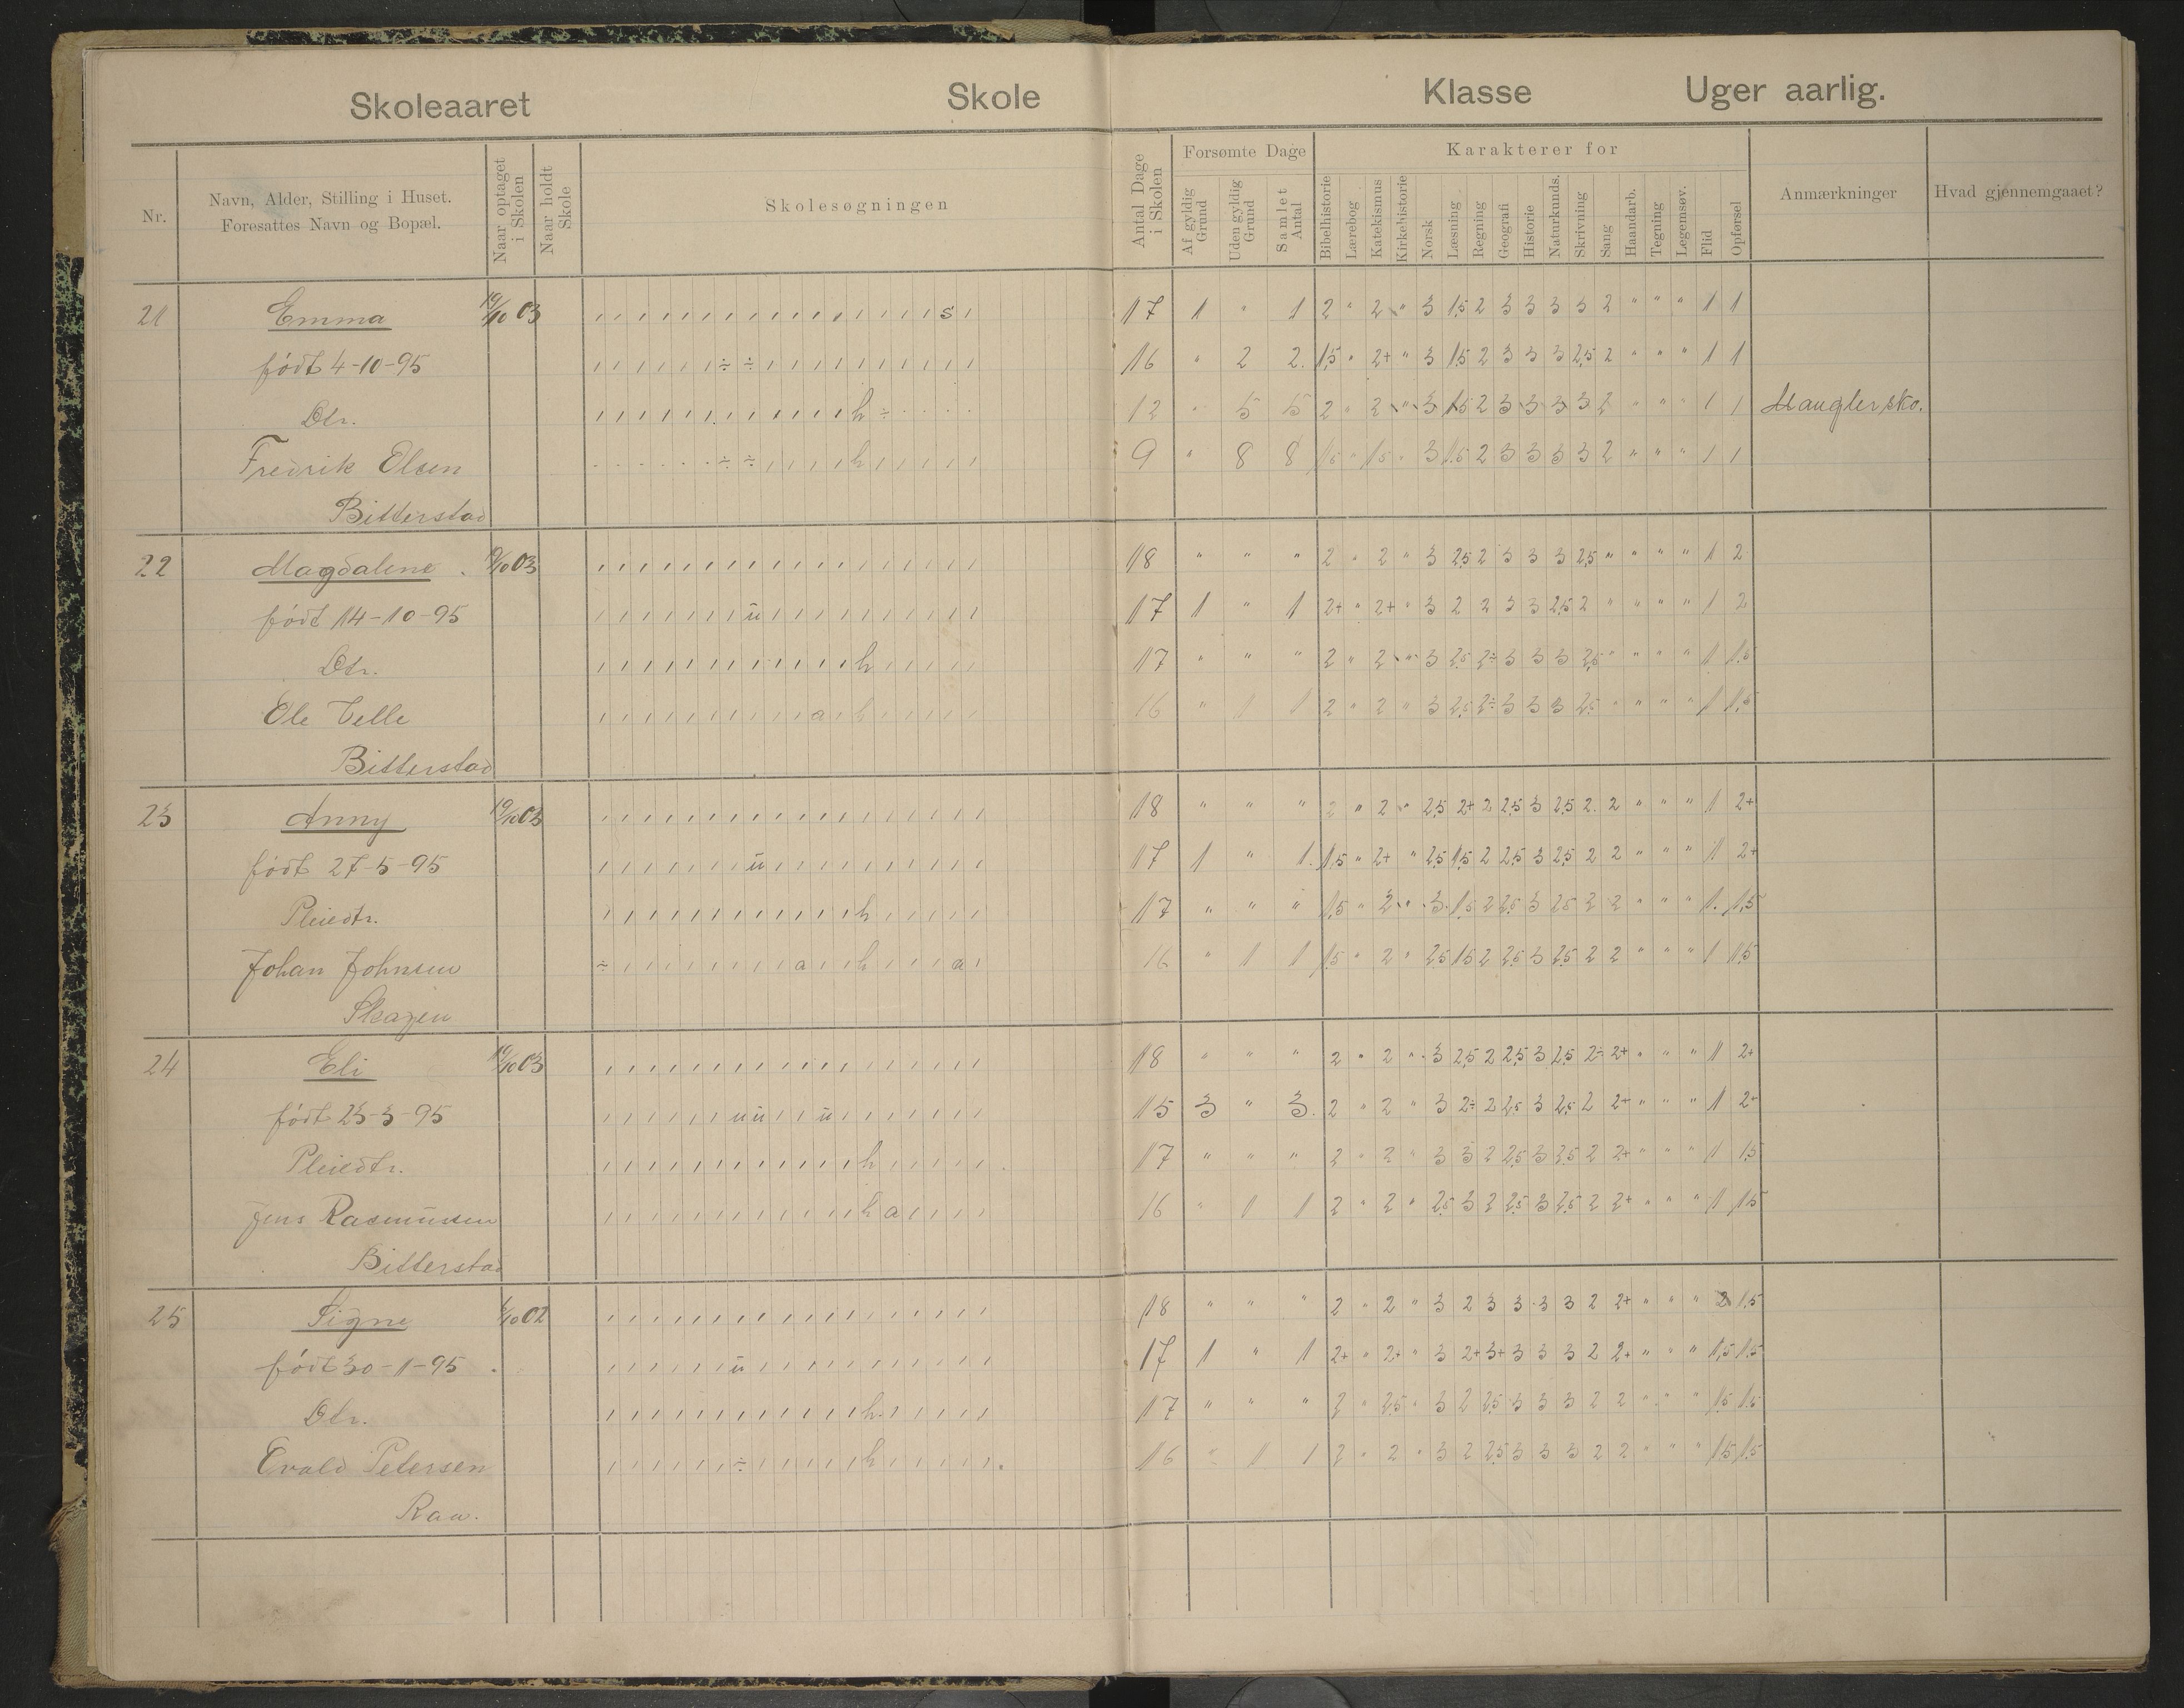 Skoleaaret Skole Klasse Uger aarlig.
Nr. Navn, Alder, Stilling i Huset. Foresattes Navn og Bopæl. Naar optaget i Skolen Naar holdt Skole Skolesøgningen Antal Dage i Skolen Forsømte Dage Af gyldig Grund Uden gyldig Grund Samlet Antal Karakterer for Bibelhistorie Lærebog Katekismus Kirkehistorie Norsk Læsning Regning Geografi Historie Naturkunds. Skrivning Sang Haandarb. Tegning Legemsøv. Flid Opførsel Anmærkninger Hvad gjennemgaaet?
21 Emma 19/10 03 s 17 1 " 1 2 " 2 " 3 1,5 2 3 3 3 3 2 " " " 1 1
født 4-10-95 ÷ ÷ 16 " 2 2. 1,5 " 2+ " 3 1,5 2 3 3 3 2,5 2 " " " 1 1
Dtr. h ÷ 12 " 5 5 2 " 2 " 3 1,5 2 3 3 3 3 2 " " " 1 1 Mangler sko.
Fredrik Olsen ÷ ÷ h 9 " 8 8 1,5 " 1,5 " 3 1,5 2 3 3 3 3 2 " " " 1 1
Bitterstad
22 Magdalene 19/10 03 18 " " " 2 " 2 " 3 2,5 2 3 3 3 2,5 " " " " 1 2
født 14-10-95 u 17 1 " 1 2+ " 2+ " 3 2 2 3 3 2,5 2 " " " " 1 2
Dtr. h 17 " " " 2 " 2 " 3 2,5 2÷ 3 3 3 2,5 " " " " 1 1,5
Ole Velle a h 16 " 1 1 2 " 2 " 3 2,5 2÷ 3 3 3 2,5 " " " " 1 1,5
Bitterstad
23 Anny 19/10 03 18 " " " 2 " 2 " 2,5 2+ 2 2,5 3 2,5 2 2 " " " 1 2+
født 27-5-95 u 17 1 " 1. 1,5 " 2+ " 2,5 1,5 2 2,5 3 2,5 2 2 " " " 1 2+
Pleiedtr. h 17 " " " 1,5 " 2 " 3 1,5 2 2,5 3 2,5 2 2 " " " 1. 1,5
Johan Johnsen ÷ a h a 16 " 1 1 1,5 " 2 " 2,5 1,5 2 2,5 3 2,5 2 2 " " " 1 1,5
Skagen
24 Eli 19/10 03 18 " " " 2 " 2 " 3 2,5 2 2,5 3 2,5 2÷ 2+ " " " 1 2+
født 23-3-95 u u u 15 3 " 3. 2 " 2 " 3 2÷ 2 2,5 3 2,5 2 2+ " " " 1 2+
Pleiedtr. h 17 " " " 2 " 2 " 3 3 2 2,5 3 2,5 2 2+ " " " 1 1,5
Jens Rasmussen h a 16 " 1 1 2 " 2 " 2,5 3 2 2,5 3 2,5 2 2+ " " " 1 1,5
Bitterstad
25 Signe /10 02 18 " " " 2 " 2 " 3 2 3 3 3 3 2 2+ " " " 2 1,5
født 30-1-95 u 17 1 " 1 2+ " 2+ " 3 2+ 3+ 3 3 3 2 2+ " " " 1,5 1,5
Dtr. h 17 " " " 2 " 2,5 " 3 2 2,5 3 3 3 2 2 " " " 1,5 1,5
Evald Petersen ÷ h 16 " 1 1 2 " 2 " 3 2 2,5 3 3 3 2 2 " " " 1,5 1,5